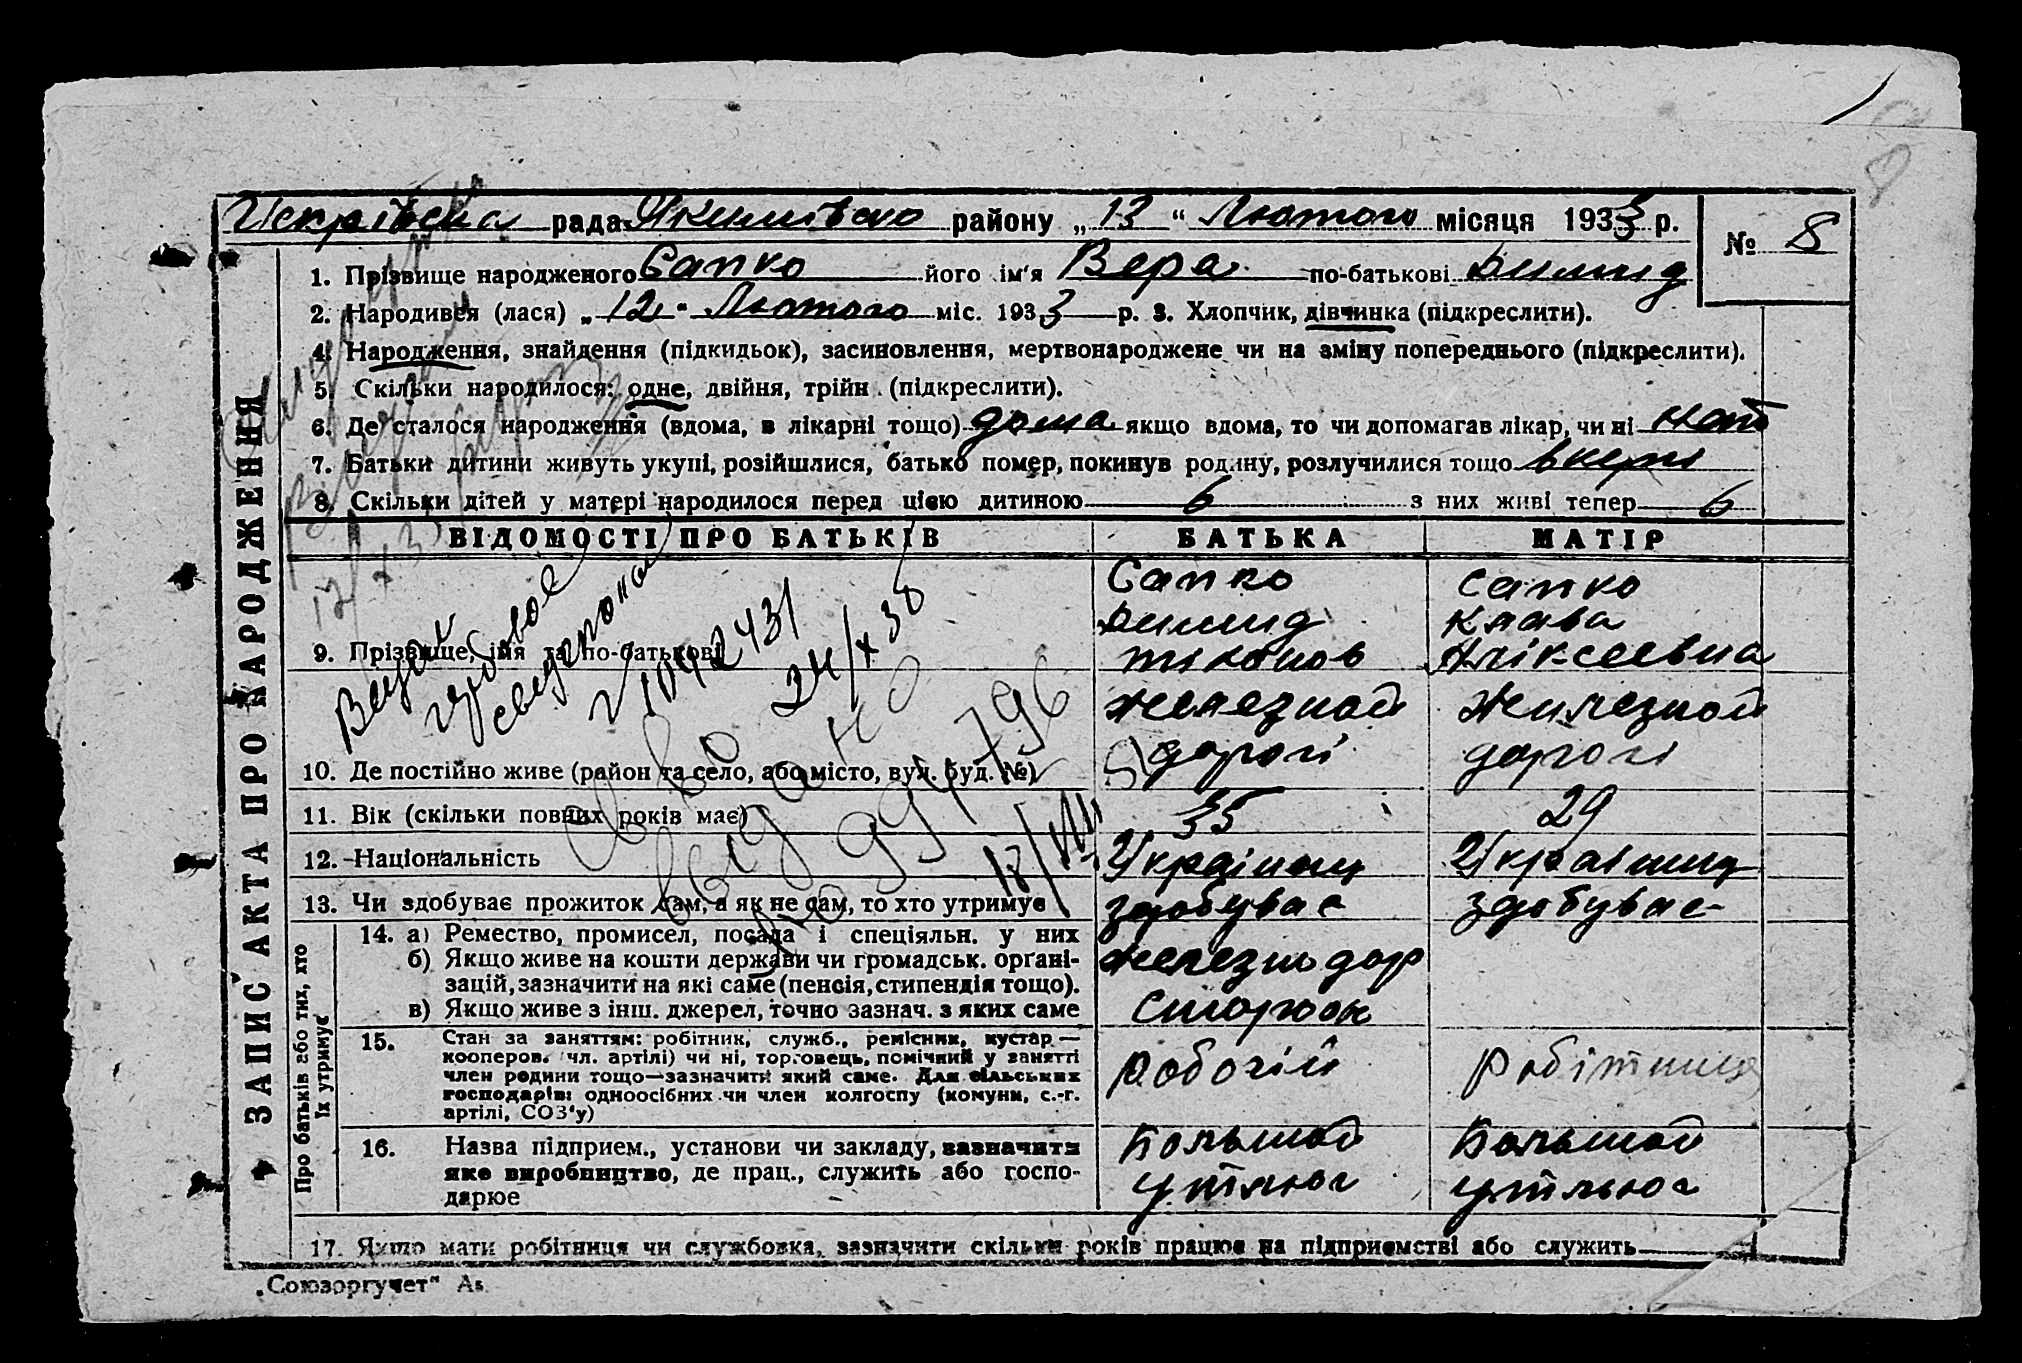 рада Якимівського району „13“ Лютого місяця 1933 р.
№ 8
ЗАПИС АКТА ПРО НАРОДЖЕННЯ
1. Прізвище народженого Сапко його ім'я Вера по-батькові Димид
2. Народився (лася) „12“ Лютого міс. 1933 р. 3. Хлопчик, дівчинка (підкреслити).
4. Народження, знайдення (підкидьок), засиновлення, мертвонароджене чи на зміну попереднього (підкреслити).
5. Скільки народилося: одне, двійня, трійн. (підкреслити).
6. Де сталося народження (вдома, в лікарні тощо) дома якщо вдома, то чи допомагав лікар, чи ні
7. Батьки дитини живуть укупі, розійшлися, батько помер, покинув родину, розлучилися тощо
8. Скільки дітей у матері народилося перед цією дитиною 6 з них живі тепер 6
ВІДОМОСТІ ПРО БАТЬКІВ БАТЬКА МАТІР
9. Прізвище, імя та по-батькові
Сапко
Димид
Сапко
Клава
Алікseевна
10. Де постійно живе (район та село, або місто, вул. буд. №)
Железной
дорогі
Железной
дорогі
11. Вік (скільки повних років має) 35 29
12. Національність Українец Украінец
13. Чи здобуває прожиток сам, а як не сам, то хто утримує здобуває здобуває
Про батьків або тих, хто
їх утримує
14. а) Ремество, промисел, посада і спеціяльн. у них
б) Якщо живе на кошти держави чи громадськ. органі-
зацій, зазначити на які саме (пенсія, стипендія тощо).
в) Якщо живе з інш. джерел, точно зазнач. з яких саме
дор
сторож
15. Стан за заняттям: робітник, служб., ремісник, кустар —
кооперов. (чл. артілі) чи ні, торговець, помічний у занятті
член родини тощо—зазначити який саме. Для сільських
господарів: одноосібних чи член колгоспу (комуни, с.-г.
артілі, СОЗ'у)
робочій
робітниця
16. Назва підприєм., установи чи закладу, зазначити
яке виробництво, де прац., служить або госпо-
дарює
Большой
Утлюг
Большой
Утльюг
17. Якщо мати робітниця чи службовка, зазначити скільки років працює на підприємстві або служить
Выдан
1042431
24/X 38
выдано
№ 994796
18/VIII
„Союзоргучет“